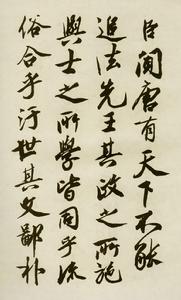 臣闻唐有天下不能
追法先王其政之所施
與士之所學皆同乎流
俗合乎汙世其文鄙朴